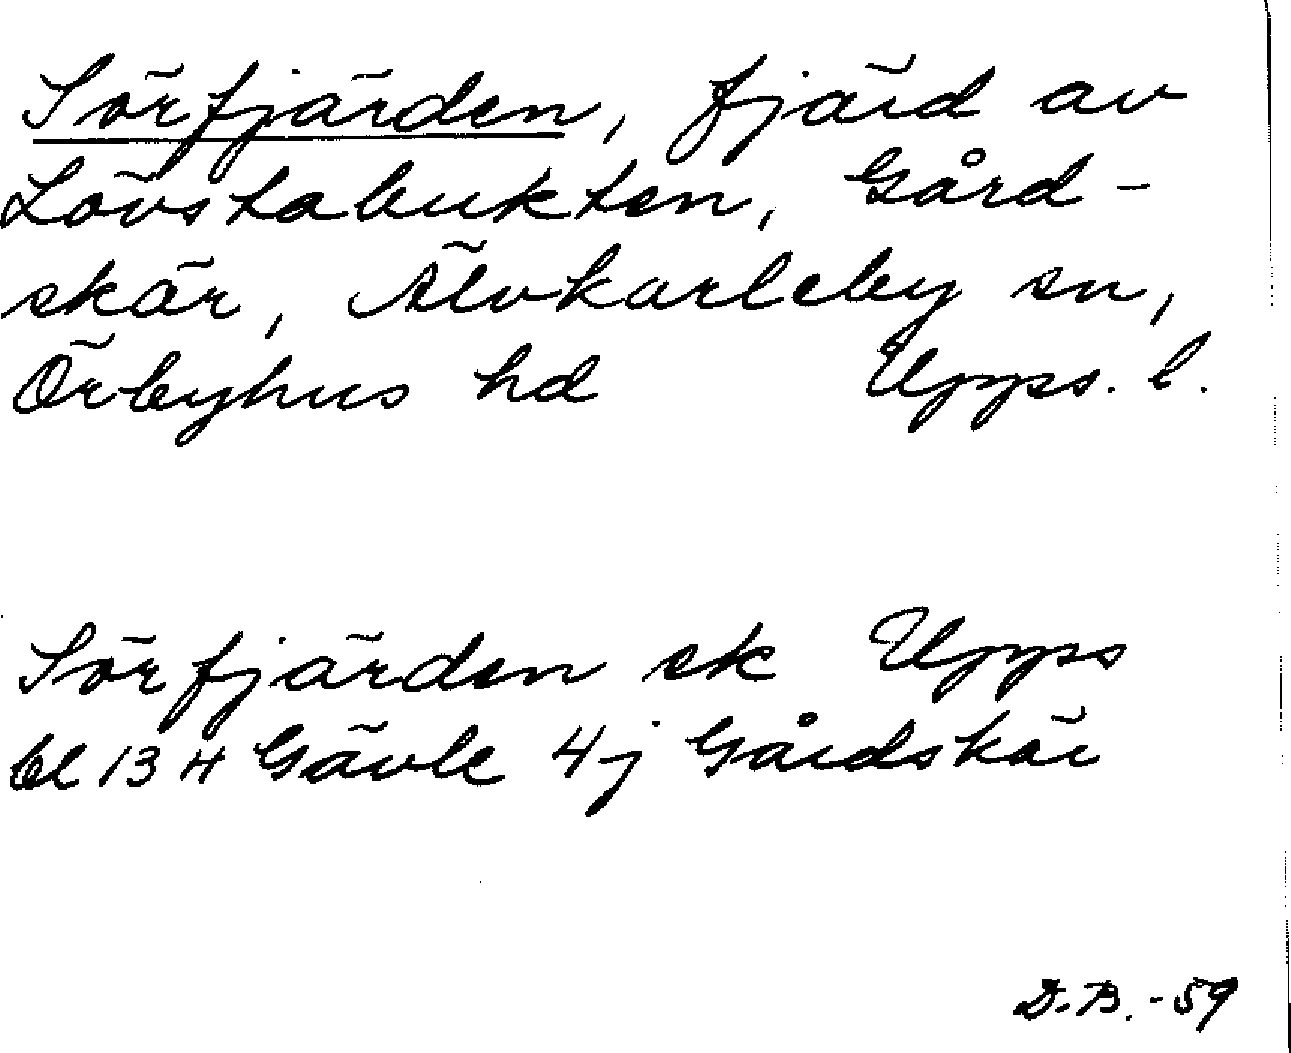 Sörfjärden, fjärd av
Lövstabukten, Gård-
skär, Älvkarleby sn,
Örbyhus hd Upps. l.
Sörfjärden ek Upps
bl 13 H Gävle 4j Gårdskär
D.B. -59